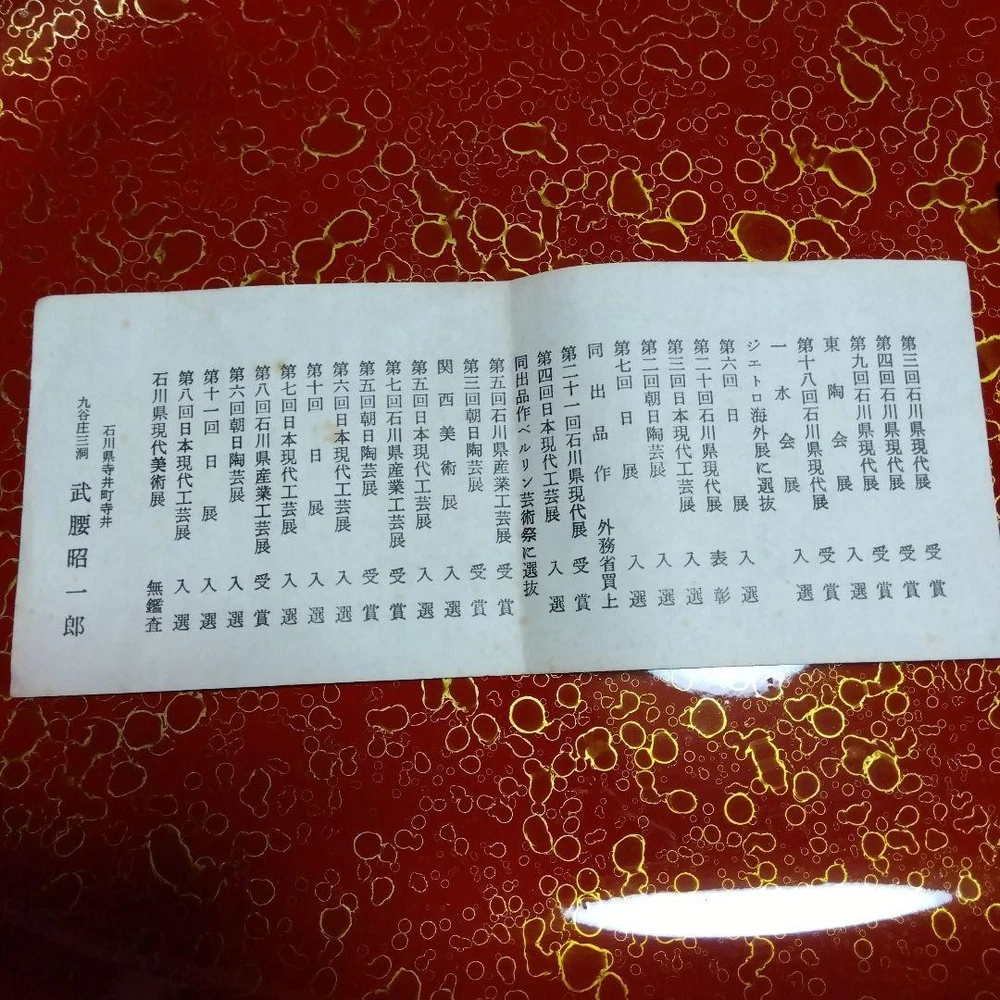 第三回石川県現代展 受賞
第四回石川県現代展 受賞
第九回石川県現代展 受賞
東陶会展 入選
第十八回石川県現代展 受賞
一水会展 入選
ジエトロ海外展に選抜
第六回日展 入選
第二十回石川県現代展 表彰
第三回日本現代工芸展 入選
第二回朝日陶芸展 入選
第七回日展 入選
同出品作 外務省買上
第二十一回石川県現代展 受賞
第四回日本現代工芸展 入選
同出品作ベルリン芸術祭に選抜
第五回石川県産業工芸展 受賞
第三回朝日陶芸展 受賞
関西美術展 入選
第五回日本現代工芸展 入選
第七回石川県産業工芸展 受賞
第五回朝日陶芸展 受賞
第六回日本現代工芸展 入選
第十回日展 入選
第七回日本現代工芸展 入選
第八回石川県産業工芸展 受賞
第六回朝日陶芸展 入選
第十一回日展 入選
第八回日本現代工芸展 入選
石川県現代美術展 無鑑査
石川県寺井町寺井
九谷庄三洞 武腰昭一郎